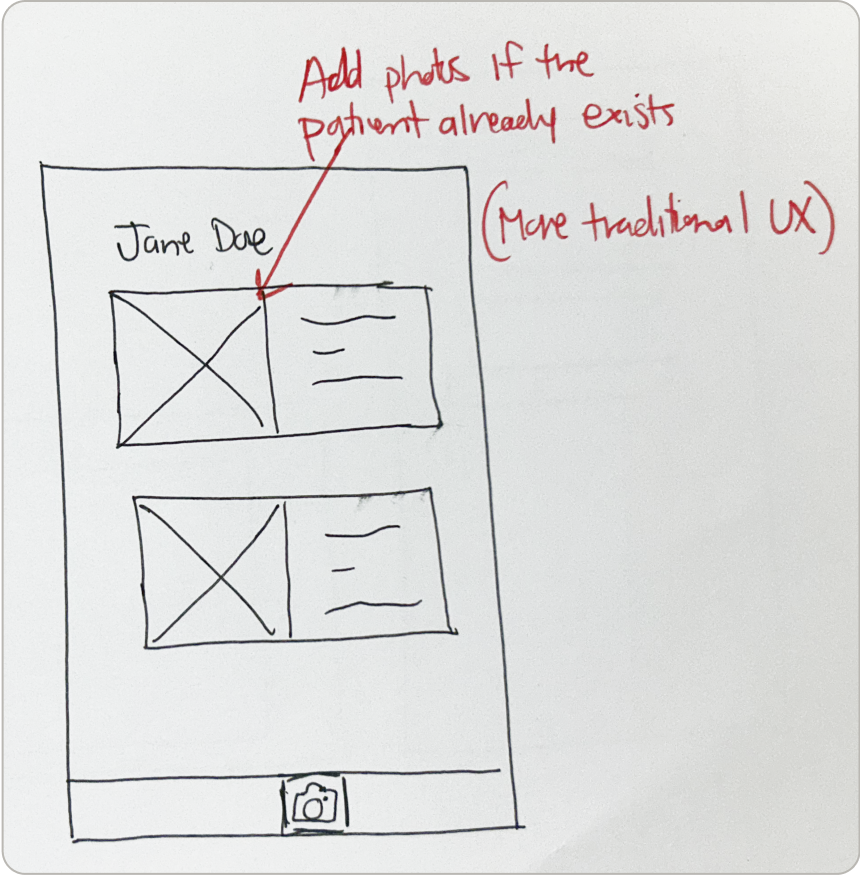 Add photos if the
patient already exists
(More traditional UX)
Jane Doe